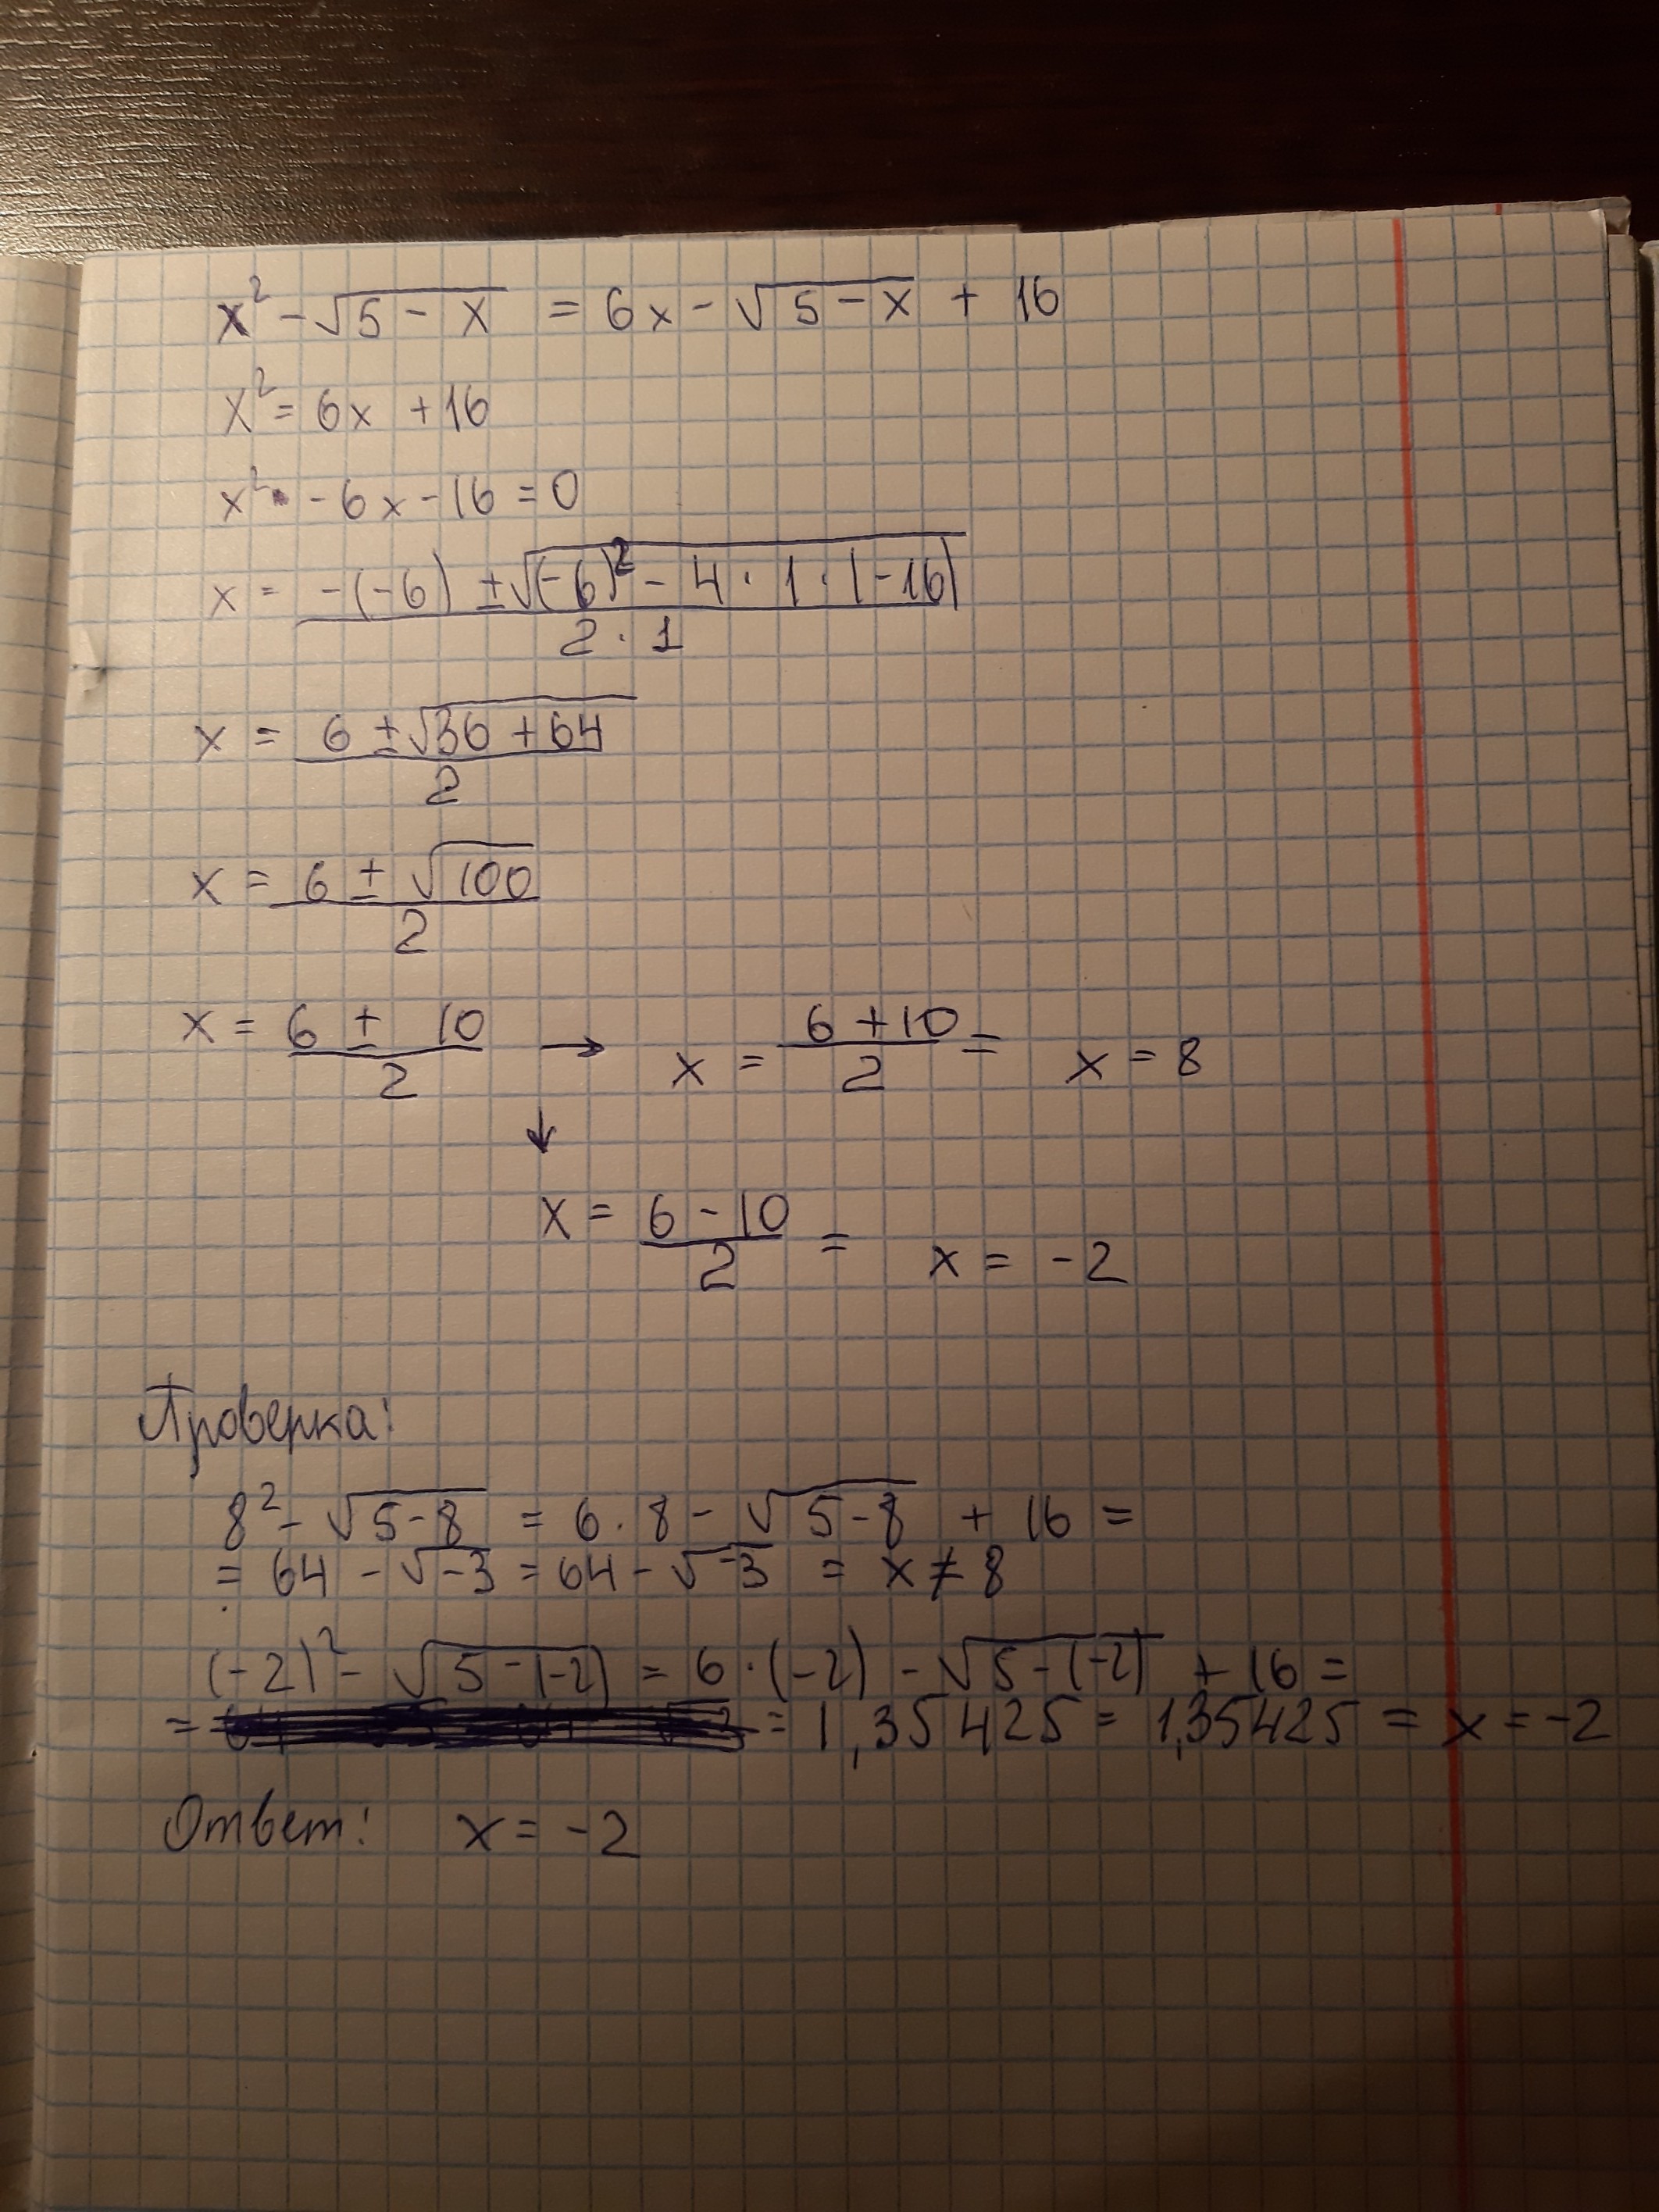 x² - √5 - x = 6x - √5 - x + 16
x² = 6x + 16
x² - 6x - 16 = 0
x = -(-6) ± √(-6)² - 4 · 1 · (-16)
2 · 1
x = 6 ± √36 + 64
2
x = 6 ± √100
2
x = 6 ± 10 → x = 6 + 10 = x = 8
2 2
↓
x = 6 - 10 = x = -2
2
Проверка:
8² - √5-8 = 6 · 8 - √5-8 + 16 =
= 64 - √-3 = 64 - √-3 = x ≠ 8
(-2)² - √5-(-2) = 6 · (-2) - √5-(-2) + 16 =
= = 1,35425 = 1,35425 = x = -2
Ответ: x = -2